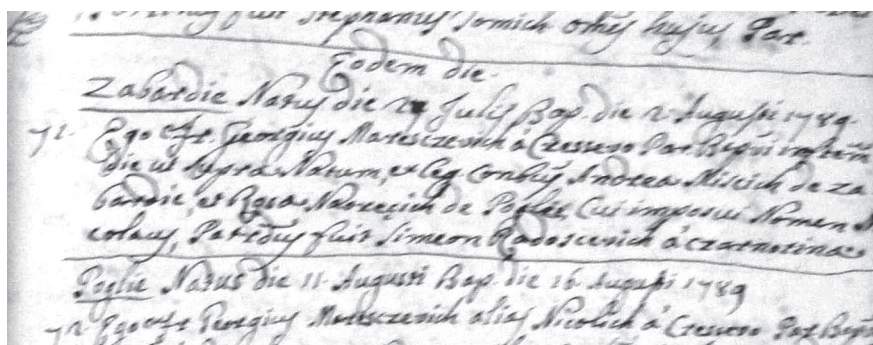 fuit Stephanus Tomich omēs hujus Par.
Eodem die.
Zabardie Natus die 2 Julij Bap. die 2 Augusti 1789.
71. Ego Fr. Georgius Marteszevich á Cressevo Par. Bapti infantem
die ut supra Natum, et Leg. Conbus Andrea Miscich de Za
bardie, et Rosa Narocich de Poglie, Cui imposui Nomen
colaus, Patrinus fuit Simeon Radoscevich á Czarnotina
Poglie Natus die 11 Augusti Bap. die 16 Augusti 1789
72. Ego Fr. Georgius Marteszevich alias Nicolich á Cressevo Par. Bapti